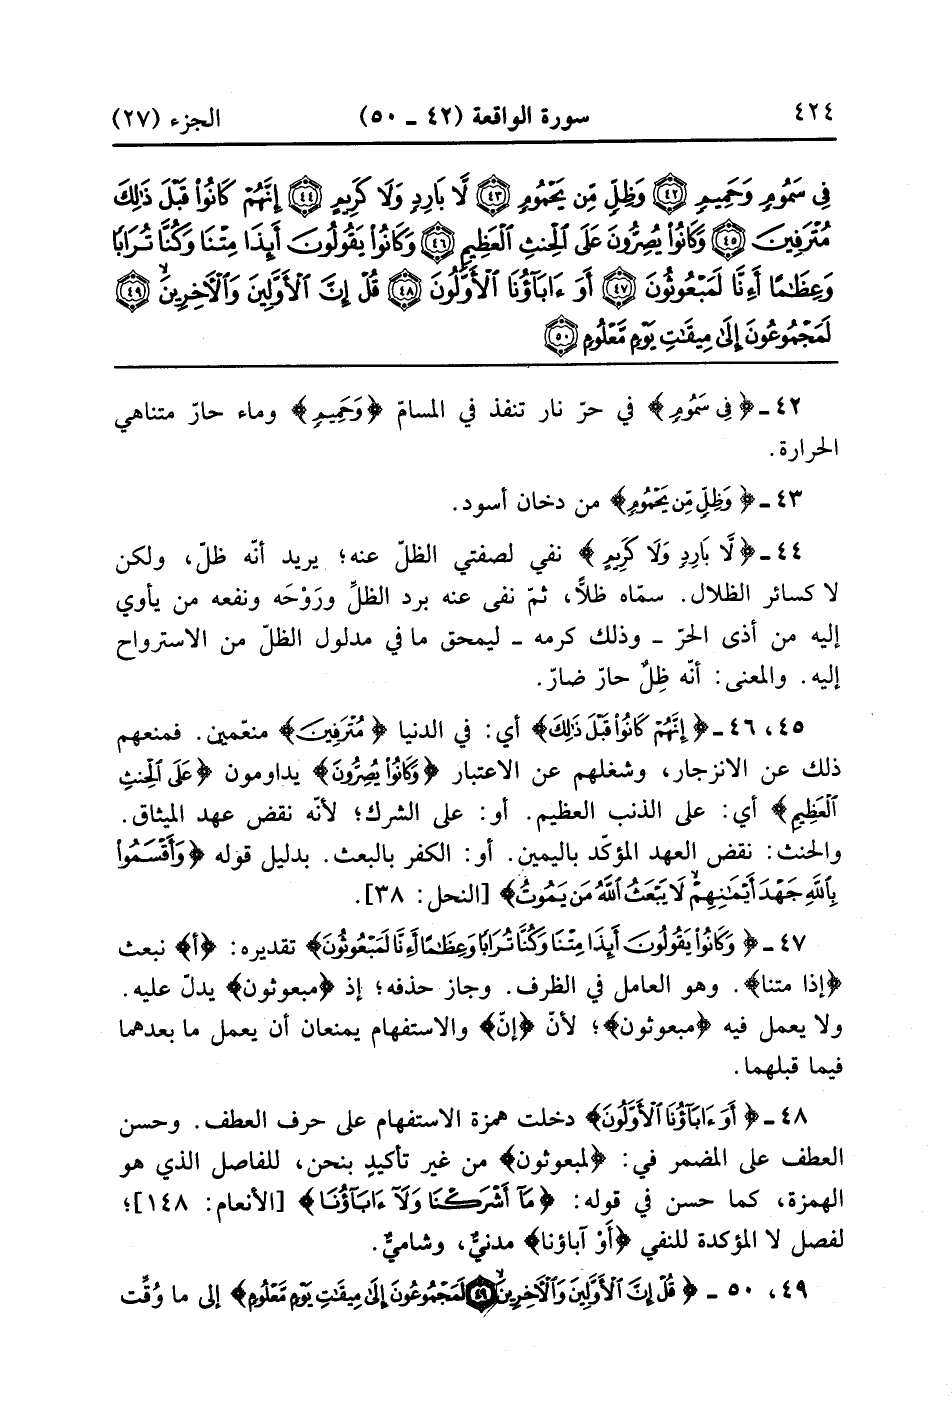 ٤٢٤ سورة الواقعة (٤٢ ـ ٥٠) الجزء (٢٧)
فِي سَمُومٍ وَحَمِيمٍ ﴿٤٢﴾ وَظِلٍّ مِّن يَحْمُومٍ ﴿٤٣﴾ لَّا بَارِدٍ وَلَا كَرِيمٍ ﴿٤٤﴾ إِنَّهُمْ كَانُوا۟ قَبْلَ ذَٰلِكَ
مُتْرَفِينَ ﴿٤٥﴾ وَكَانُوا۟ يُصِرُّونَ عَلَى ٱلْحِنثِ ٱلْعَظِيمِ ﴿٤٦﴾ وَكَانُوا۟ يَقُولُونَ أَئِذَا مِتْنَا وَكُنَّا تُرَابًا
وَعِظَٰمًا أَءِنَّا لَمَبْعُوثُونَ ﴿٤٧﴾ أَوَ ءَابَآؤُنَا ٱلْأَوَّلُونَ ﴿٤٨﴾ قُلْ إِنَّ ٱلْأَوَّلِينَ وَٱلْآخِرِينَ ﴿٤٩﴾
لَمَجْمُوعُونَ إِلَىٰ مِيقَٰتِ يَوْمٍ مَّعْلُومٍ ﴿٥٠﴾
٤٢ ـ ﴿فِي سَمُومٍ﴾ في حرّ نار تنفذ في المسامّ ﴿وَحَمِيمٍ﴾ وماء حارّ متناهي
الحرارة.
٤٣ ـ ﴿وَظِلٍّ مِّن يَحْمُومٍ﴾ من دخان أسود.
٤٤ ـ ﴿لَّا بَارِدٍ وَلَا كَرِيمٍ﴾ نفي لصفتي الظلّ عنه؛ يريد أنّه ظلّ، ولكن
لا كسائر الظلال. سمّاه ظلاًّ، ثمّ نفى عنه برد الظلِّ ورَوْحَه ونفعه من يأوي
إليه من أذى الحرّ ـ وذلك كرمه ـ ليمحق ما في مدلول الظلّ من الاسترواح
إليه. والمعنى: أنّه ظِلٌّ حارّ ضارّ.
٤٥، ٤٦ ـ ﴿إِنَّهُمْ كَانُوا۟ قَبْلَ ذَٰلِكَ﴾ أي: في الدنيا ﴿مُتْرَفِينَ﴾ منعّمين. فمنعهم
ذلك عن الانزجار، وشغلهم عن الاعتبار ﴿وَكَانُوا۟ يُصِرُّونَ﴾ يداومون ﴿عَلَى ٱلْحِنثِ
ٱلْعَظِيمِ﴾ أي: على الذنب العظيم. أو: على الشرك؛ لأنّه نقض عهد الميثاق.
والحنث: نقض العهد المؤكّد باليمين. أو: الكفر بالبعث. بدليل قوله ﴿وَأَقْسَمُوا۟
بِٱللَّهِ جَهْدَ أَيْمَٰنِهِمْ لَا يَبْعَثُ ٱللَّهُ مَن يَمُوتُ﴾ [النحل: ٣٨].
٤٧ ـ ﴿وَكَانُوا۟ يَقُولُونَ أَئِذَا مِتْنَا وَكُنَّا تُرَابًا وَعِظَٰمًا أَءِنَّا لَمَبْعُوثُونَ﴾ تقديره: ﴿أ﴾ نبعث
﴿إذا متنا﴾. وهو العامل في الظرف. وجاز حذفه؛ إذ ﴿مبعوثون﴾ يدلّ عليه.
ولا يعمل فيه ﴿مبعوثون﴾؛ لأنّ ﴿إنّ﴾ والاستفهام يمنعان أن يعمل ما بعدهما
فيما قبلهما.
٤٨ ـ ﴿أَوَ ءَابَآؤُنَا ٱلْأَوَّلُونَ﴾ دخلت همزة الاستفهام على حرف العطف. وحسن
العطف على المضمر في: ﴿لمبعوثون﴾ من غير تأكيدٍ بنحن، للفاصل الذي هو
الهمزة، كما حسن في قوله: ﴿مَآ أَشْرَكْنَا وَلَآ ءَابَآؤُنَا﴾ [الأنعام: ١٤٨]؛
لفصل لا المؤكدة للنفي ﴿أَوْ آباؤنا﴾ مدنيٌّ، وشاميٌّ.
٤٩، ٥٠ ـ ﴿قُلْ إِنَّ ٱلْأَوَّلِينَ وَٱلْآخِرِينَ ﴿٤٩﴾ لَمَجْمُوعُونَ إِلَىٰ مِيقَٰتِ يَوْمٍ مَّعْلُومٍ﴾ إلى ما وُقِّت